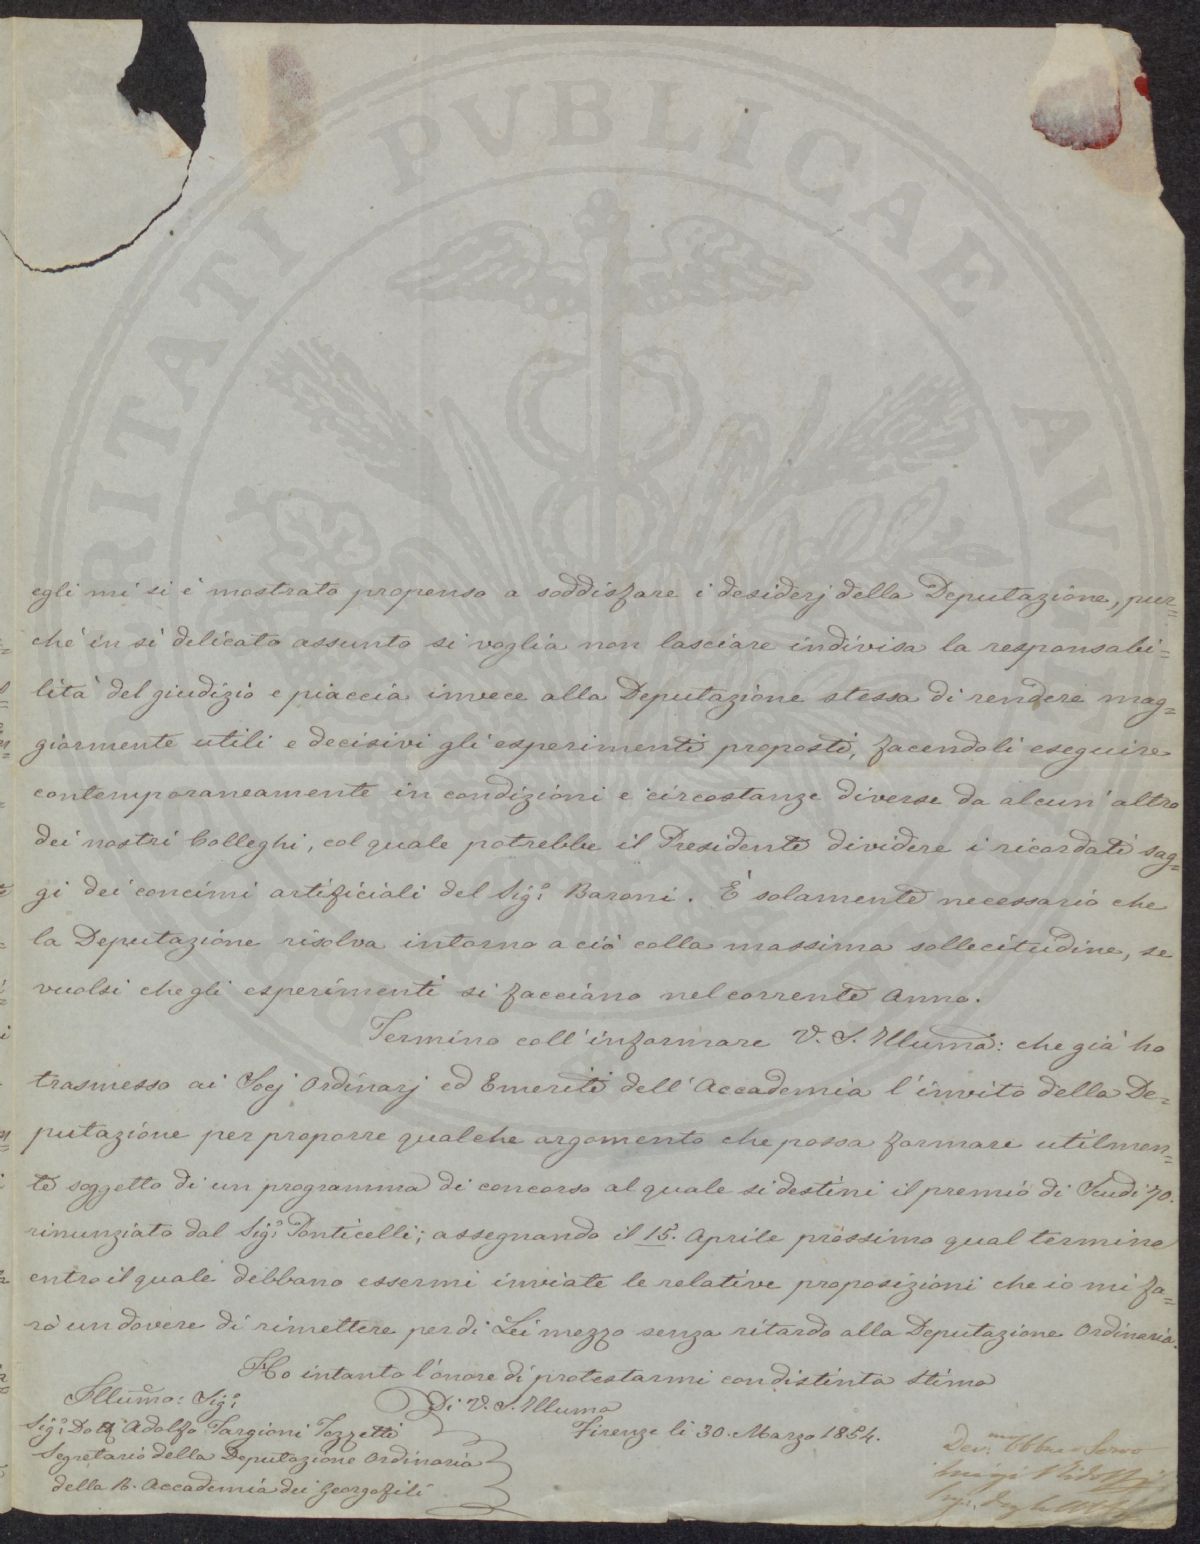 PROSPERITATI PUBLICAE AUGENDAE
egli mi si è mostrato propenso a soddisfare i desiderj della Deputazione, pur=
chè in sì delicato assunto si voglia non lasciare indivisa la responsabi=
lità del giudizio e piaccia invece alla Deputazione stessa di rendere mag=
giormente utili e decisivi gli esperimenti proposti, facendoli eseguire
contemporaneamente in condizioni e circostanze diverse da alcun'altro
dei nostri Colleghi, col quale potrebbe il Presidente dividere i ricordati sag=
gi dei concimi artificiali del Sigr. Baroni. È solamente necessario che
la Deputazione risolva intorno a ciò colla massima sollecitudine, se
vuolsi che gli esperimenti si facciano nel corrente Anno.
Termino coll'informare V. S. Illuma: che già ho
trasmesso ai Socj Ordinarj ed Emeriti dell'Accademia l'invito della De=
putazione per proporre qualche argomento che possa formare utilmen=
te soggetto di un programma di concorso al quale si destini il premio di Scudi 70.
rinunziato dal Sigr. Ponticelli; assegnando il 15. Aprile prossimo qual termine
entro il quale debbano essermi inviate le relative proposizioni che io mi fa=
rò un dovere di rimettere per di Lei mezzo senza ritardo alla Deputazione Ordinaria.
Ho intanto l'onore di protestarmi con distinta stima
Di V. S. Illuma
Illumo: Sigr.
Firenze li 30. Marzo 1854.
Sigr. Dott. Adolfo Targioni Tozzetti
Segretario della Deputazione Ordinaria
della R. Accademia dei Georgofili
Dev.mo Obbmo Servo
Luigi Ridolfi